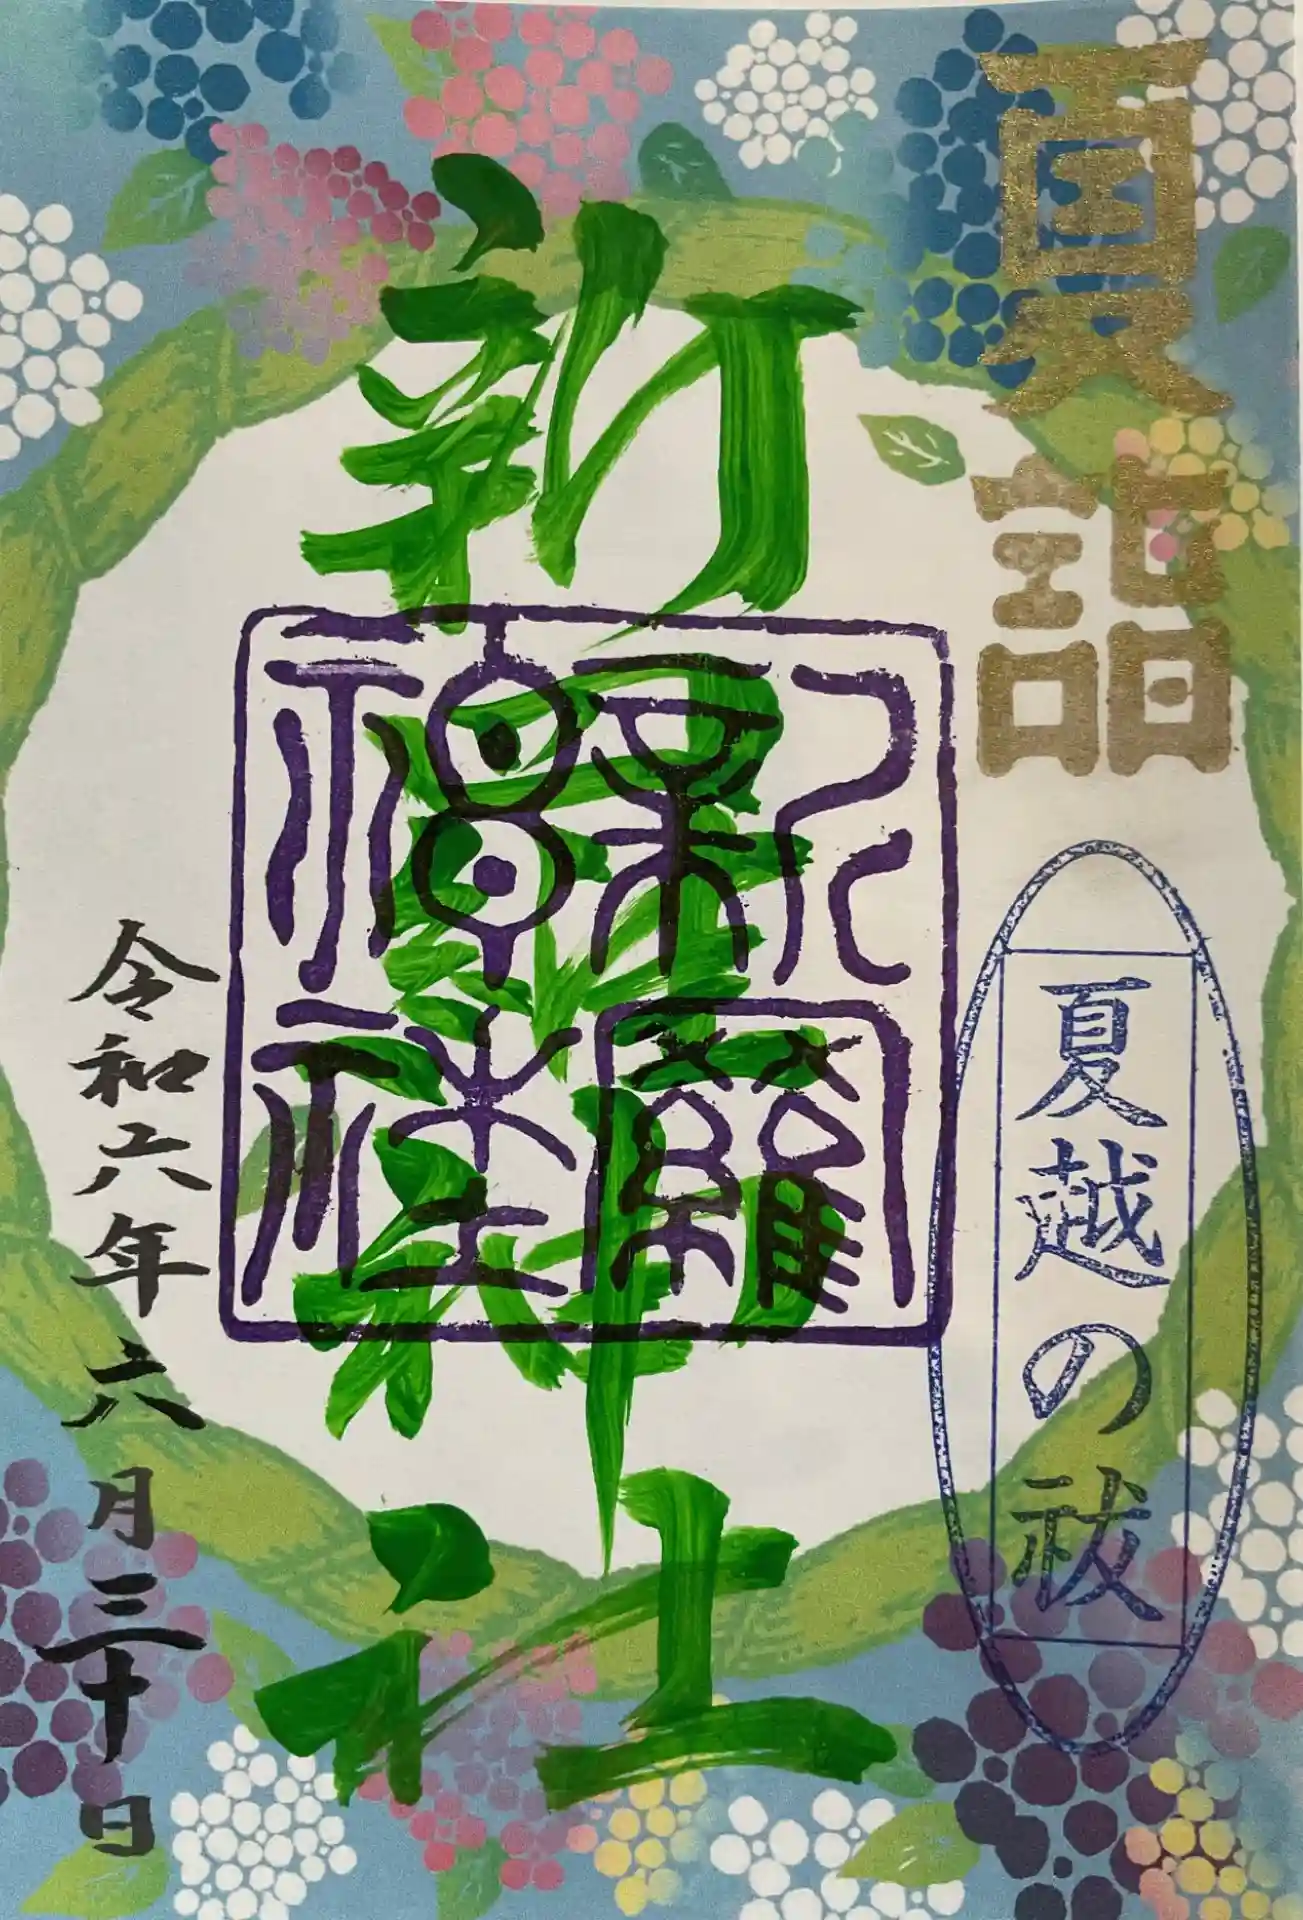 夏詣
夏越の祓
新羅神社
新羅神社
令和六年六月三十日